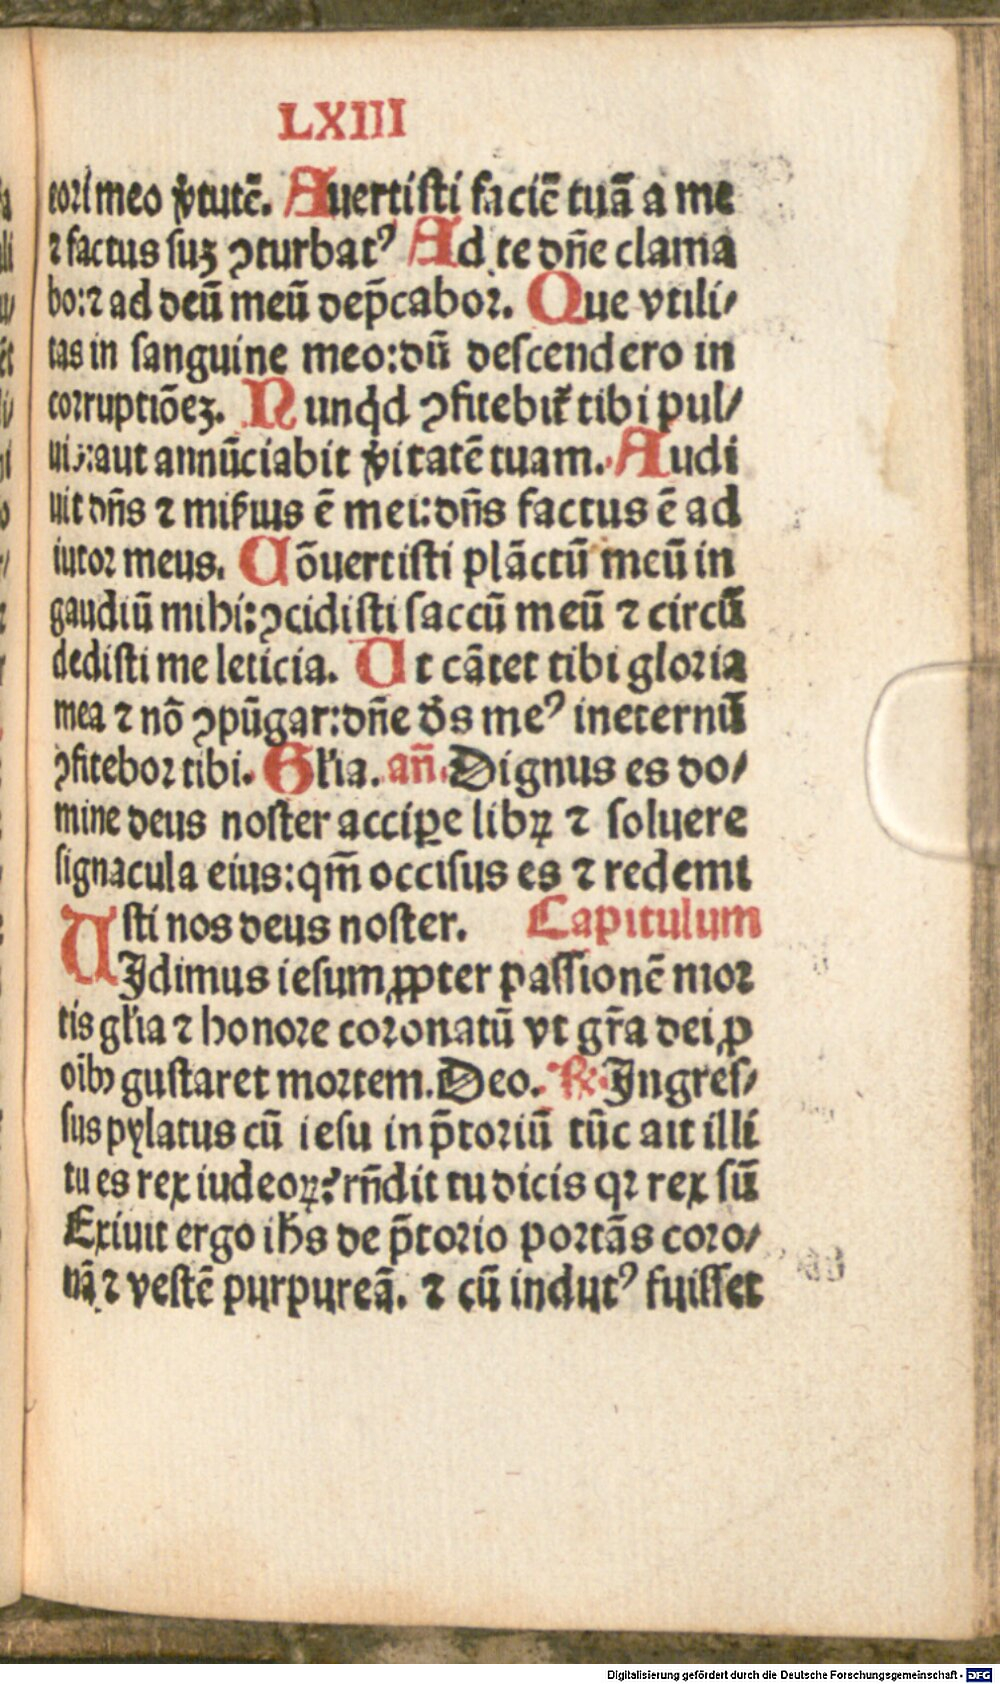 LXIII
cori meo v̓tutē. Auertisti faciē tuā a me
⁊ factus suꝫ ꝯturbatꝰ Ad te dn̄e clama
bo:⁊ ad deū meū dep̄cabor. Que vtili/
tas in sanguine meo:dū descendero in
corruptiōeꝫ. Nunq̇d ꝯfitebit᷑ tibi pul/
uis:aut annūciabit v̓itatē tuam. Audi
uit dn̄s ⁊ mis̓tus ē mei:dn̄s factus ē ad
iutor meus. Cōuertisti plāctū meū in
gaudiū mihi:ꝯcidisti saccū meū ⁊ circū
dedisti me leticia. Ut cātet tibi gloria
mea ⁊ nō ꝯpūgar:dn̄e ds̄ meꝰ ineternū
ꝯfitebor tibi. Gl̓ia. an̄. Dignus es do/
mine deus noster accipe librꝝ ⁊ soluere
signacula eius:qm̄ occisus es ⁊ redemi
sti nos deus noster. Capitulum
UJdimus iesum ꝓpter passionē mor
tis gl̓ia ⁊ honore coronatū vt gr̄a dei ꝓ
oībꝰ gustaret mortem. Deo. ℟. Jngres/
sus pylatus cū iesu in p̄toriū tūc ait illi
tu es rex iudeoꝝ? rn̄dit tu dicis qꝛ rex sū
Exiuit ergo ih̄s de p̄torio portās coro/
nā ⁊ vestē purpureā. ⁊ cū indutꝰ fuisset
Digitalisierung gefördert durch die Deutsche Forschungsgemeinschaft - DFG